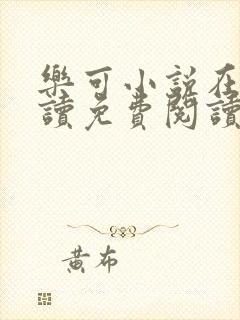 樂可小說在
讀免費閱讀
黃布